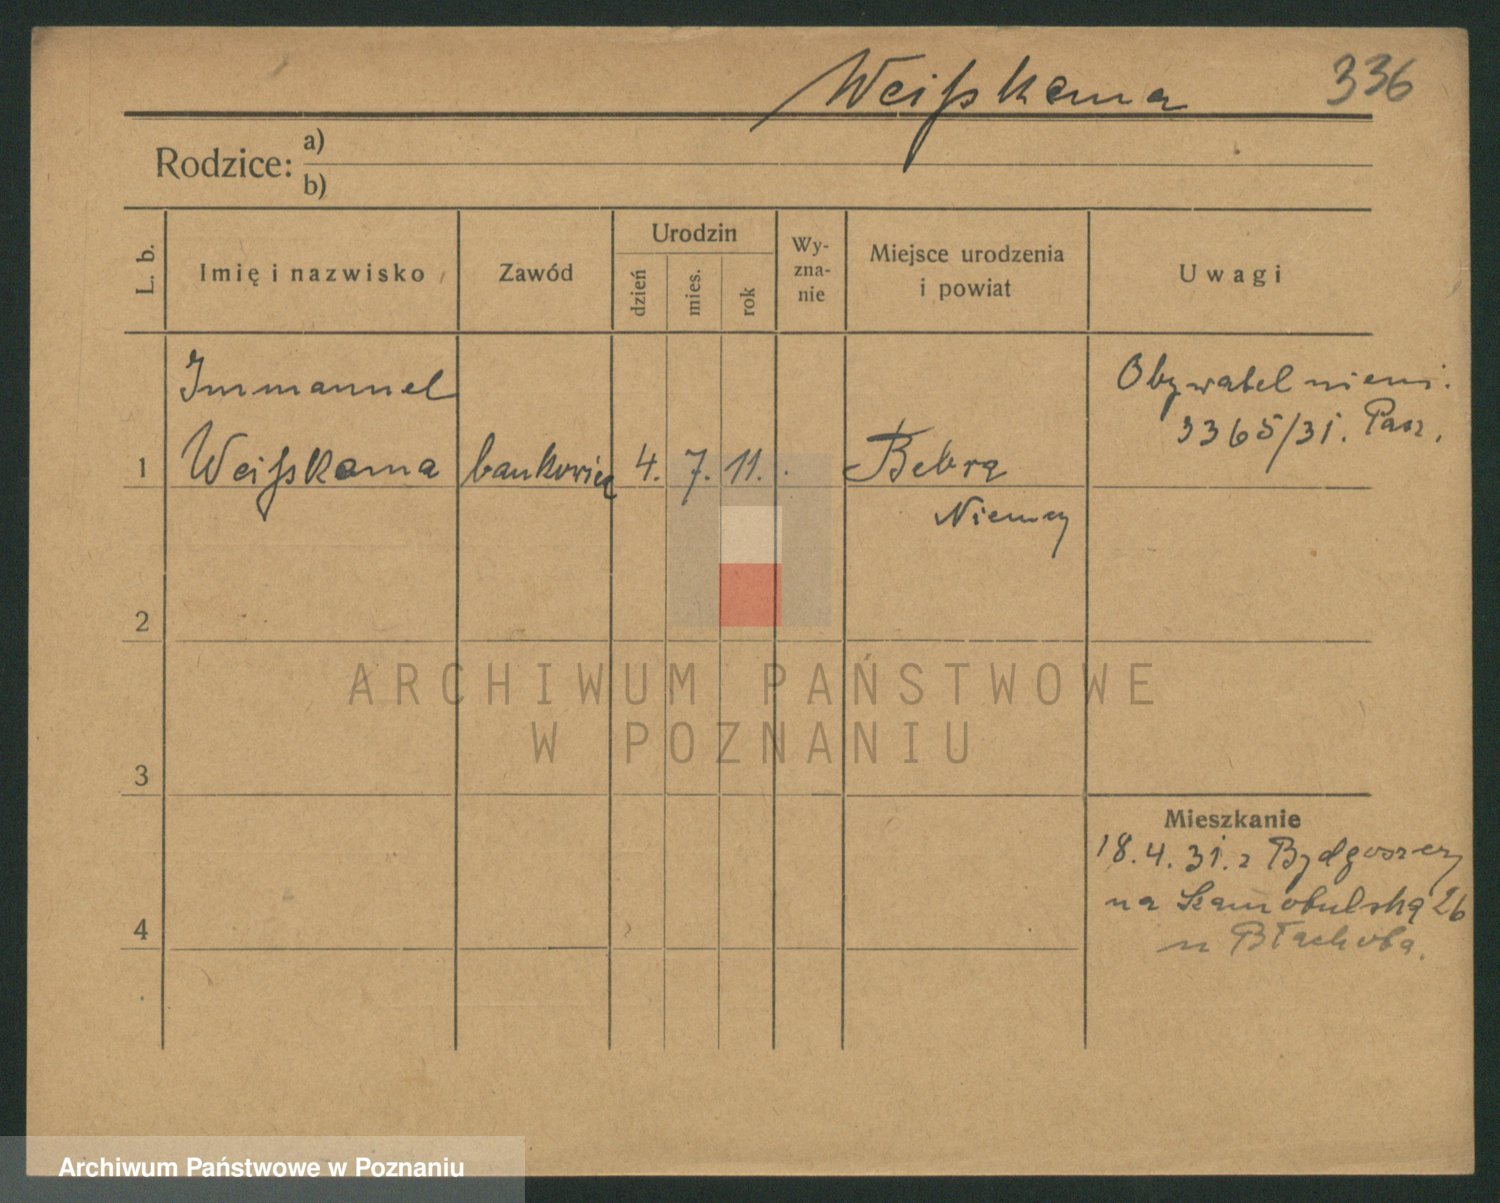 Weißkama 336
Rodzice: a)
b)
L. b.
Imię i nazwisko
Zawód
Urodzin
dzień
mies.
rok
Wy-
zna-
nie
Miejsce urodzenia
i powiat
Uwagi
Immanuel
1 Weißkama bankowiec 4. 7. 11. Bebra
Niemcy
Obywatel niem.
3365/31. Pasz.
2
3
4
Mieszkanie
18.4.31. z Bydgoszczy
na Szamotulską 26
u
ARCHIWUM PAŃSTWOWE
W POZNANIU
Archiwum Państwowe w Poznaniu